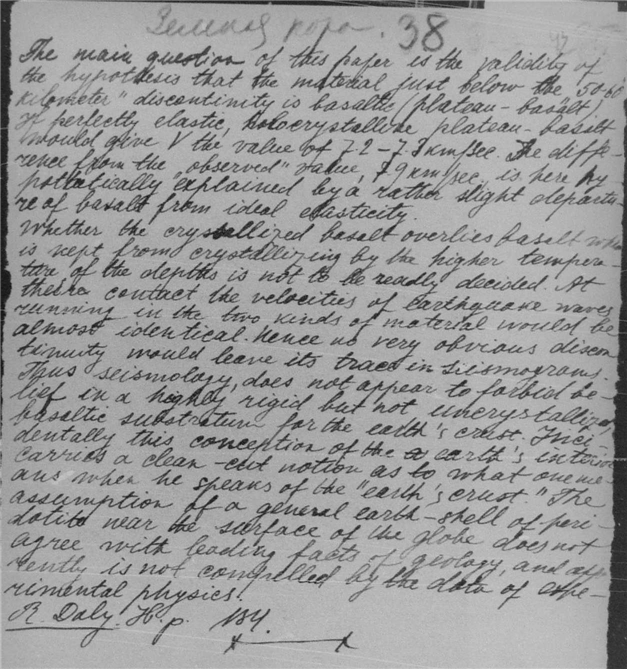 Земная кора. 38
The main question of this paper is the validity of
the hypothesis that the material just below the "50-60
kilometer" discontinuity is basaltic (plateau-basalt).
If perfectly elastic, holocrystalline plateau-basalt
would give V the value of 7.2-7.3 km/sec. The diffe-
rence from the "observed" value, 7.9 km/sec, is here hy
pothetically explained by a rather slight departu-
re of basalt from ideal elasticity.
Whether the crystallized basalt overlies basalt
is kept from crystallizing by the higher tempera-
ture of the depths is not to be readly decided. At
their contact the velocities of earthquake waves
running in the two kinds of material would be
almost identical. Hence no very obvious discon
tinuity would leave its trace in seismograms.
Thus seismology does not appear to forbid be-
lief in a highly rigid but not uncrystallized
basaltic substratum for the earth's crust. Inci
dentally this conception of the earth's interior
carries a clean-cut notion as to what one me-
ans when he speaks of the "earth's crust." The
assumption of a general earth-shell of peri-
dotite near the surface of the globe does not
agree with leading facts of geology, and app
rently is not compelled by the data of expe-
rimental physics.
R. Daly. H. p. 134.